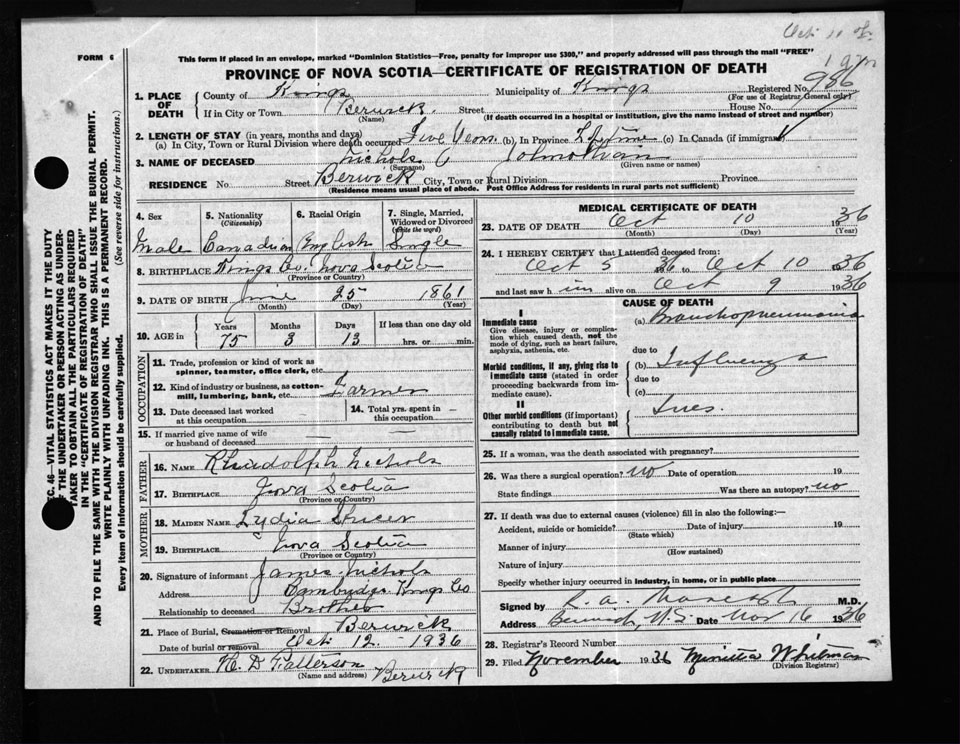 Oct 11
FORM 6
This form if placed in an envelope, marked "Dominion Statistics—Free, penalty for improper use $300," and properly addressed will pass through the mail "FREE"
PROVINCE OF NOVA SCOTIA—CERTIFICATE OF REGISTRATION OF DEATH
1. PLACE OF DEATH
County of Kings Municipality of Kings Registered No. 986
(For use of Registrar General only)
If in City or Town Berwick Street House No.
(Name) (If death occurred in a hospital or institution, give the name instead of street and number)
2. LENGTH OF STAY (in years, months and days)
(a) In City, Town or Rural Division where death occurred Five Years (b) in Province Lifetime (c) In Canada (if immigrant)
3. NAME OF DECEASED Nichols John
(Surname) (Given name or names)
RESIDENCE No. Street Berwick City, Town or Rural Division Province
(Residence means usual place of abode. Post Office Address for residents in rural parts not sufficient)
4. Sex 5. Nationality (Citizenship) 6. Racial Origin 7. Single, Married, Widowed or Divorced (write the word)
Male Canadian English Single
8. BIRTHPLACE Kings Co. Nova Scotia
(Province or Country)
9. DATE OF BIRTH June 25 1861
(Month) (Day) (Year)
10. AGE in Years Months Days If less than one day old
75 3 13 hrs. or min.
OCCUPATION
11. Trade, profession or kind of work as spinner, teamster, office clerk, etc.
12. Kind of industry or business, as cotton-mill, lumbering, bank, etc. Farmer
13. Date deceased last worked at this occupation — 14. Total yrs. spent in this occupation —
15. If married give name of wife or husband of deceased
FATHER
16. NAME Rhudolph Nichols
17. BIRTHPLACE Nova Scotia
(Province or Country)
MOTHER
18. MAIDEN NAME Lydia
19. BIRTHPLACE Nova Scotia
(Province or Country)
20. Signature of informant James Nichols
Address Cambridge Kings Co
Relationship to deceased Brother
21. Place of Burial, Cremation or Removal Berwick
Date of burial or removal Oct 12 1936
22. UNDERTAKER H. D Patterson Berwick
(Name and address)
MEDICAL CERTIFICATE OF DEATH
23. DATE OF DEATH Oct 10 1936
(Month) (Day) (Year)
24. I HEREBY CERTIFY that I attended deceased from:
Oct 5 1936 to Oct 10 1936
and last saw him alive on Oct 9 1936
CAUSE OF DEATH
I
Immediate cause (a) Bronchopneumonia
Give disease, injury or complication which caused death, not the mode of dying, such as heart failure, asphyxia, asthenia, etc.
due to
Morbid conditions, if any, giving rise to immediate cause (stated in order proceeding backwards from immediate cause). (b) Influenza
due to
(c)
II
Other morbid conditions (if important) contributing to death but not causally related to immediate cause.
25. If a woman, was the death associated with pregnancy?
26. Was there a surgical operation? no Date of operation 19
State findings Was there an autopsy? no
27. If death was due to external causes (violence) fill in also the following:—
Accident, suicide or homicide? Date of injury 19
(State which)
Manner of injury
(How sustained)
Nature of injury
Specify whether injury occurred in industry, in home, or in public place
Signed by M.D.
Address Berwick, N.S. Date Nov 16 1936
28. Registrar's Record Number
29. Filed November 1936 Minetta Whitman
(Division Registrar)
SEC. 46—VITAL STATISTICS ACT MAKES IT THE DUTY
OF THE UNDERTAKER OR PERSON ACTING AS UNDER-
TAKER TO OBTAIN ALL THE PARTICULARS REQUIRED
IN THE "CERTIFICATE OF REGISTRATION OF DEATH"
AND TO FILE THE SAME WITH THE DIVISION REGISTRAR WHO SHALL ISSUE THE BURIAL PERMIT.
WRITE PLAINLY WITH UNFADING INK. THIS IS A PERMANENT RECORD.
Every item of information should be carefully supplied. (See reverse side for instructions.)